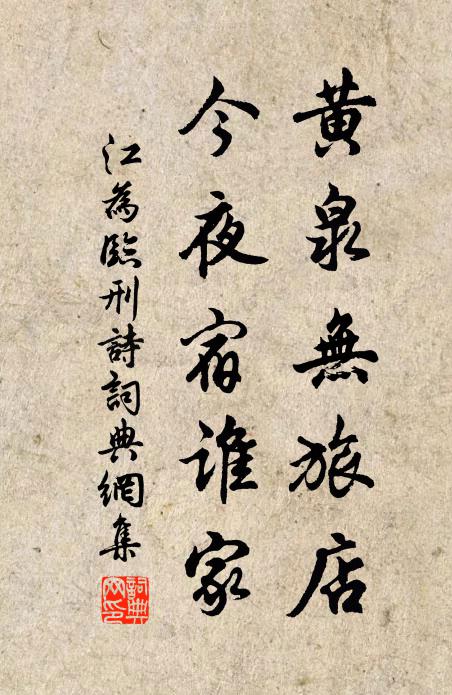 黄泉無旅店
今夜宿誰家
江為臨刑詩詞典網集
詞典網印